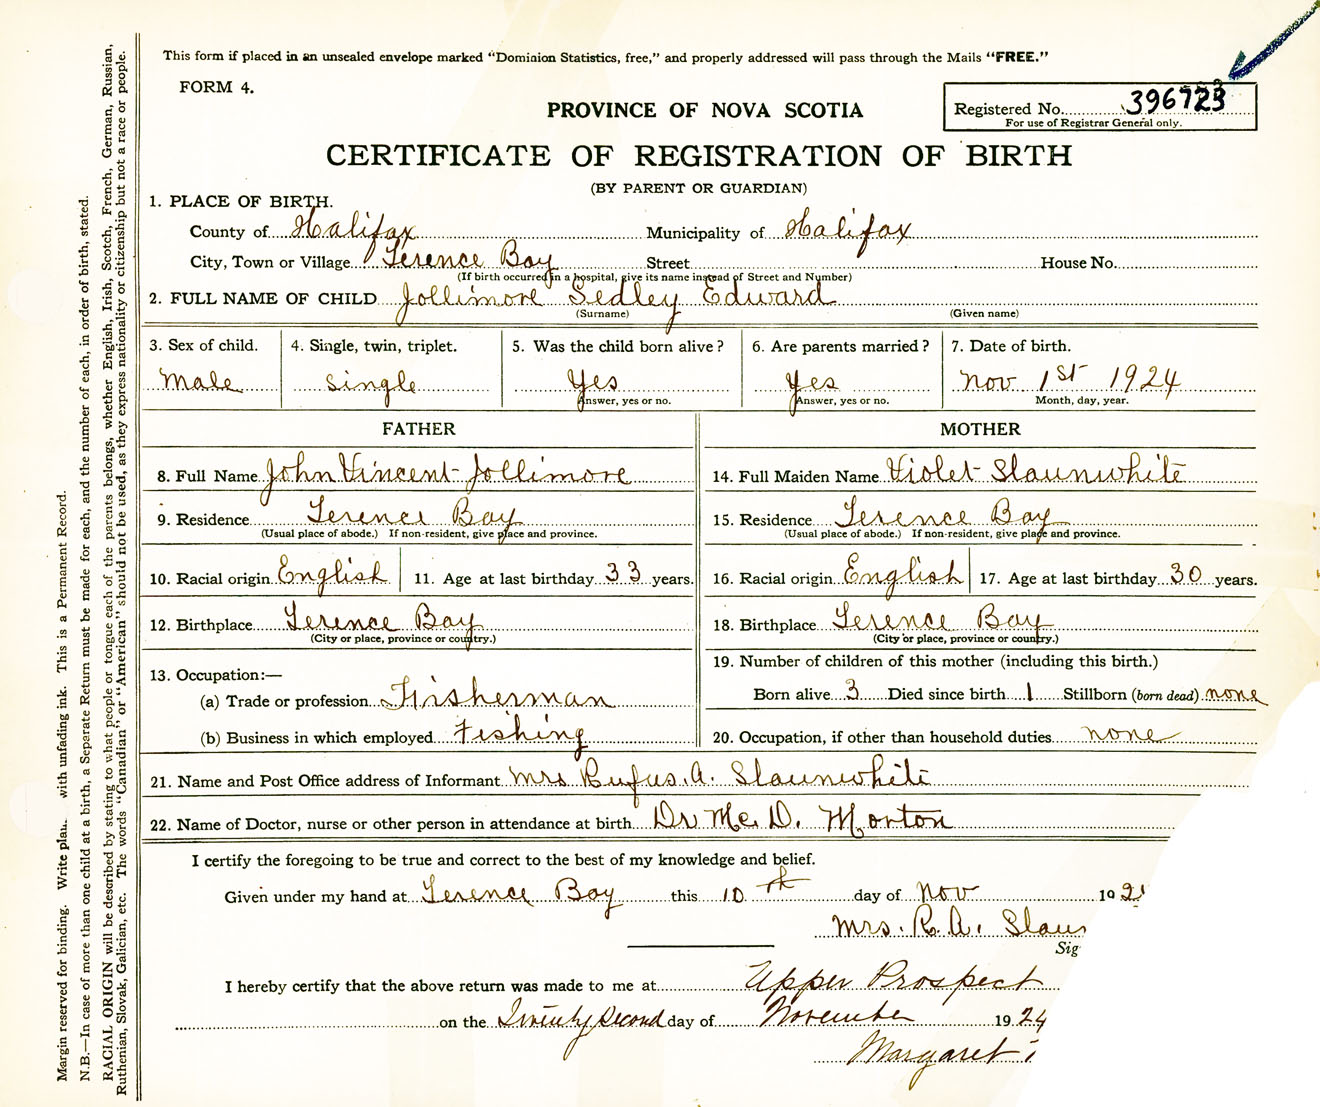 This form if placed in an unsealed envelope marked "Dominion Statistics, free," and properly addressed will pass through the Mails "FREE."
FORM 4.
PROVINCE OF NOVA SCOTIA
Registered No. 396723
For use of Registrar General only.
CERTIFICATE OF REGISTRATION OF BIRTH
(BY PARENT OR GUARDIAN)
1. PLACE OF BIRTH.
County of Halifax Municipality of Halifax
City, Town or Village Terence Bay Street House No.
(If birth occurred in a hospital, give its name instead of Street and Number)
2. FULL NAME OF CHILD Jollimore Sedley Edward
(Surname) (Given name)
3. Sex of child. 4. Single, twin, triplet. 5. Was the child born alive? 6. Are parents married? 7. Date of birth.
Male single Yes Yes Nov 1st 1924
Answer, yes or no. Answer, yes or no. Month, day, year.
FATHER MOTHER
8. Full Name John Vincent Jollimore 14. Full Maiden Name Violet Slaunwhite
9. Residence Terence Bay 15. Residence Terence Bay
(Usual place of abode.) If non-resident, give place and province. (Usual place of abode.) If non-resident, give place and province.
10. Racial origin English 11. Age at last birthday 33 years. 16. Racial origin English 17. Age at last birthday 30 years.
12. Birthplace Terence Bay 18. Birthplace Terence Bay
(City or place, province or country.) (City or place, province or country.)
13. Occupation:— 19. Number of children of this mother (including this birth.)
(a) Trade or profession Fisherman Born alive 3 Died since birth 1 Stillborn (born dead) none
(b) Business in which employed Fishing 20. Occupation, if other than household duties none
21. Name and Post Office address of Informant Mrs Rufus. A. Slaunwhite
22. Name of Doctor, nurse or other person in attendance at birth Dr Mc. D. Morton
I certify the foregoing to be true and correct to the best of my knowledge and belief.
Given under my hand at Terence Bay this 10th day of Nov 192
Mrs. R. A. Slaun
Sig
I hereby certify that the above return was made to me at Upper Prospect
on the Twenty Second day of November 1924
Margaret
Margin reserved for binding. Write plain. with unfading ink. This is a Permanent Record.
N.B.—In case of more than one child at a birth, a Separate Return must be made for each, and the number of each, in order of birth, stated.
RACIAL ORIGIN will be described by stating to what people or tongue each of the parents belongs, whether English, Irish, Scotch, French, German, Russian,
Ruthenian, Slovak, Galician, etc. The words "Canadian" or "American" should not be used, as they express nationality or citizenship but not a race or people.